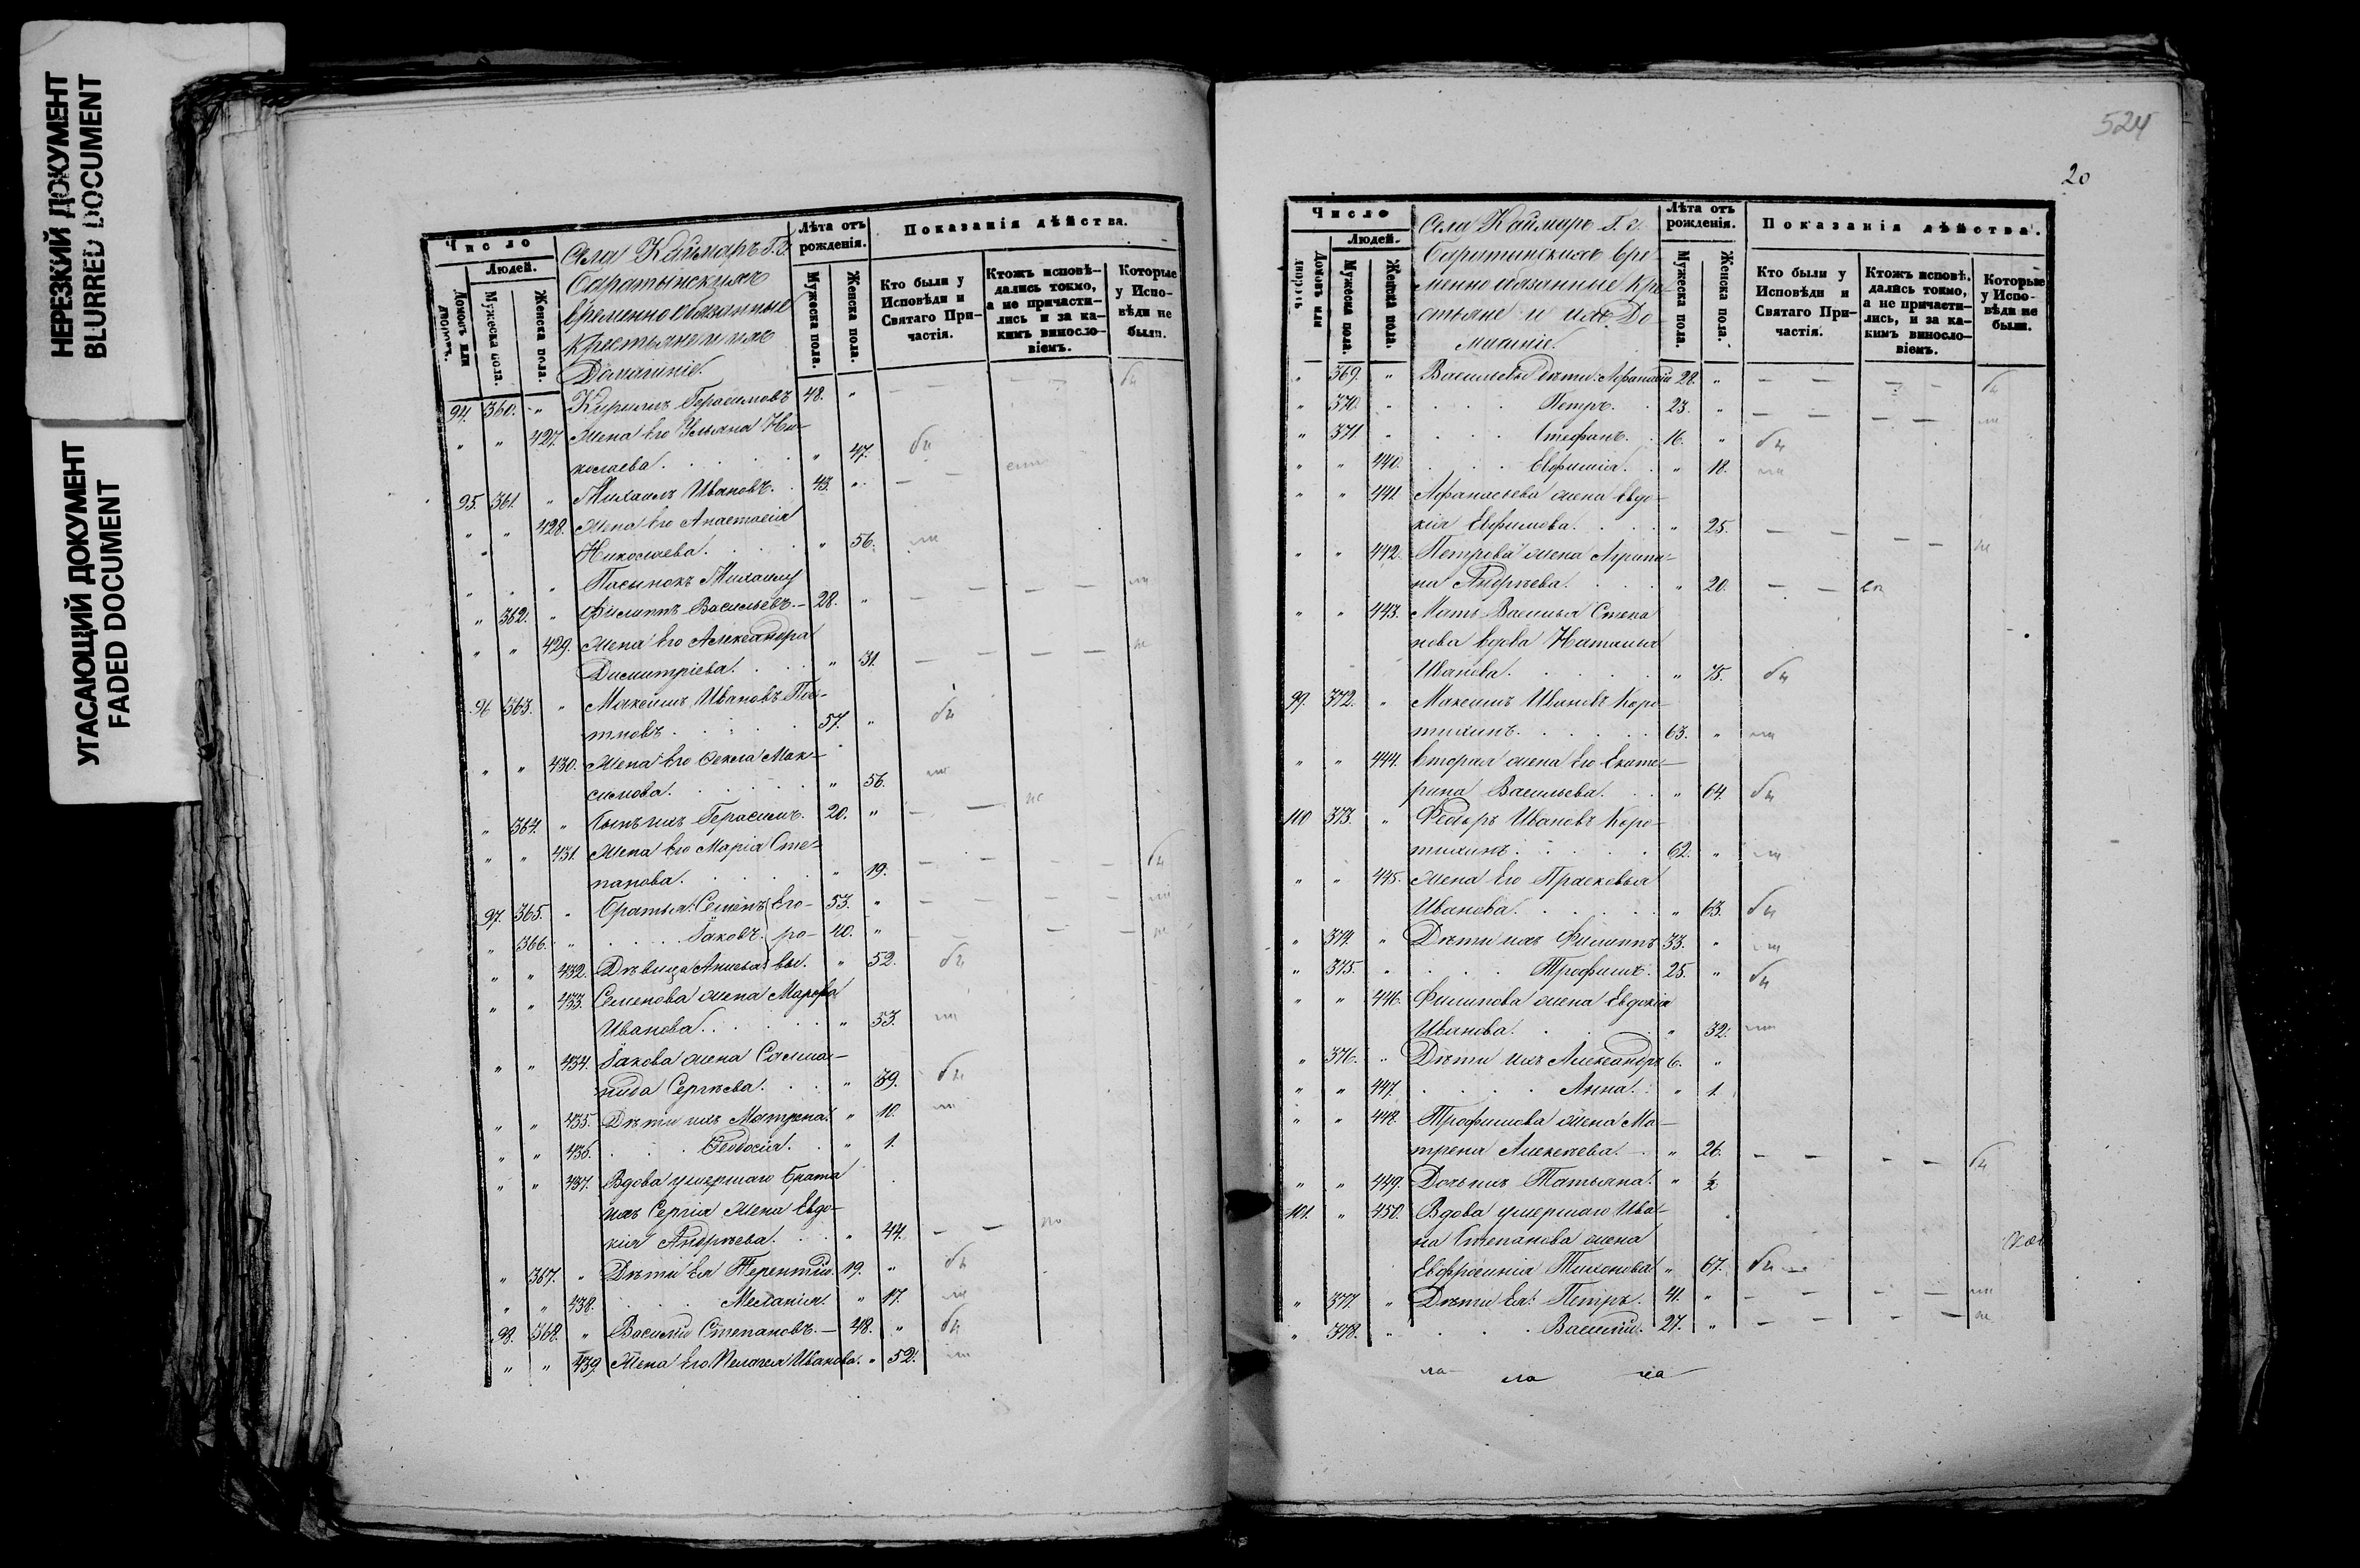 НЕРЕЗКИЙ ДОКУМЕНТ
BLURRED DOCUMENT
УГАСАЮЩИЙ ДОКУМЕНТ
FADED DOCUMENT
Число
Людей.
Домовъ или дворовъ.
Мужеска пола.
Женска пола.
Села Каймаръ Г. г.
Баратынскихъ
временно обязанные
Крестьяне и ихъ
Домашніе.
Лѣта отъ рожденія.
Мужеска пола.
Женска пола.
Показанія дѣйства.
Кто были у Исповѣди и Святаго Причастія.
Ктожъ исповѣдались токмо, а не причастились и за какимъ винословіемъ.
Которые у Исповѣди не были.
94. 360. " Кирилъ Герасимовъ 48. " — — — бы
" " 427. Жена его Ульяна Ни-
колаева. " 47. бы
95. 361. " Михаилъ Ивановъ. 43. " — —
" " 428. Жена его Анастасія
" Николаева. " 56.
" " " Пасынокъ Михаилу
" 362. " Филиппъ Васильевъ. — 28. " — — — —
" " 429. Жена его Александра
Димитріева. " 31. — — — —
96 363. " Максимъ Ивановъ
57. " бы
" " 430. Жена его Ѳекла Мак-
симова. " 56.
" 364. " Сынъ ихъ Герасимъ. 20. " — —
" " 431. Жена его Марія Сте-
панова. " 19. — — — — бы
97. 365. " Братья: Семенъ его 53. " — — — —
" 366. " Іаковъ. ро- 40. " — — — —
" " 432. Дѣвица Анисья вы. " 52. бы
" " 433. Семенова жена Марѳа
Иванова. " 53.
" " 434. Іакова жена Соломо-
нида Сергѣева. " 39. бы
" " 435. Дѣти ихъ Матрена. " 10.
" " 436. Ѳеодосія. " 1.
" " 437. Вдова умершаго брата
ихъ Сергія жена Евдо-
кія Андреева. " 44. — —
" 367. " Дѣти ея Терентій. 19. " бы
" " 438. Меланія. " 17.
98. 368. " Василій Степановъ. — 48. " бы
" " 439. Жена его Пелагея Иванова. " 52.
524
20
Число
Людей.
Домовъ или дворовъ.
Мужеска пола.
Женска пола.
Села Каймаръ Г. г.
Баратинскихъ вре-
менно обязанные Кре-
стьяне и ихъ До-
машніе.
Лѣта отъ рожденія.
Мужеска пола.
Женска пола.
Показанія дѣйства.
Кто были у Исповѣди и Святаго Причастія.
Ктожъ исповѣдались токмо, а не причастились, и за какимъ винословіемъ.
Которые у Исповѣди не были.
" 369. " Васильевы дѣти: Афанасій 28. " — — — — бы
" 370. " Петръ. 23. " — — — —
" 371 " Стефанъ. 16. " бы
" " 440. Евфимія. " 18.
" " 441. Афанасьева жена Евдо-
кія Евфимова. " 25. — — — —
" " 442. Петрова жена Агрипи-
на Андреева. " 20. — —
" " 443. Мать Василья Степа
нова вдова Наталья
Иванова. " 75. бы
99. 372. " Максимъ Ивановъ Коро-
тихинъ. 63. "
" " 444. Вторая жена его Екате-
рина Васильева. " 64. бы
100 373. " Ѳедоръ Ивановъ Коро-
тихинъ. 62. "
" " 445. Жена его Прасковья
Иванова. " 63. бы
" 374. " Дѣти ихъ Филиппъ 33. "
" 375. " Трофимъ. 25. " бы
" " 446. Филипова жена Евдокія
Иванова. " 32.
" 376. " Дѣти ихъ Александръ 6. "
" " 447. Анна. " 1.
" " 448. Трофимова жена Ма-
трена Алексѣева. — " 26. — — — — бы
" " 449. Дочь ихъ Татьяна. " ½
101. " 450. Вдова умершаго Ива-
на Степанова жена
Евфросинія Тихонова " 67. бы —
" 377. " Дѣти ея: Петръ. 41. " — — — —
" 378. " Василій. 27. " — — — —